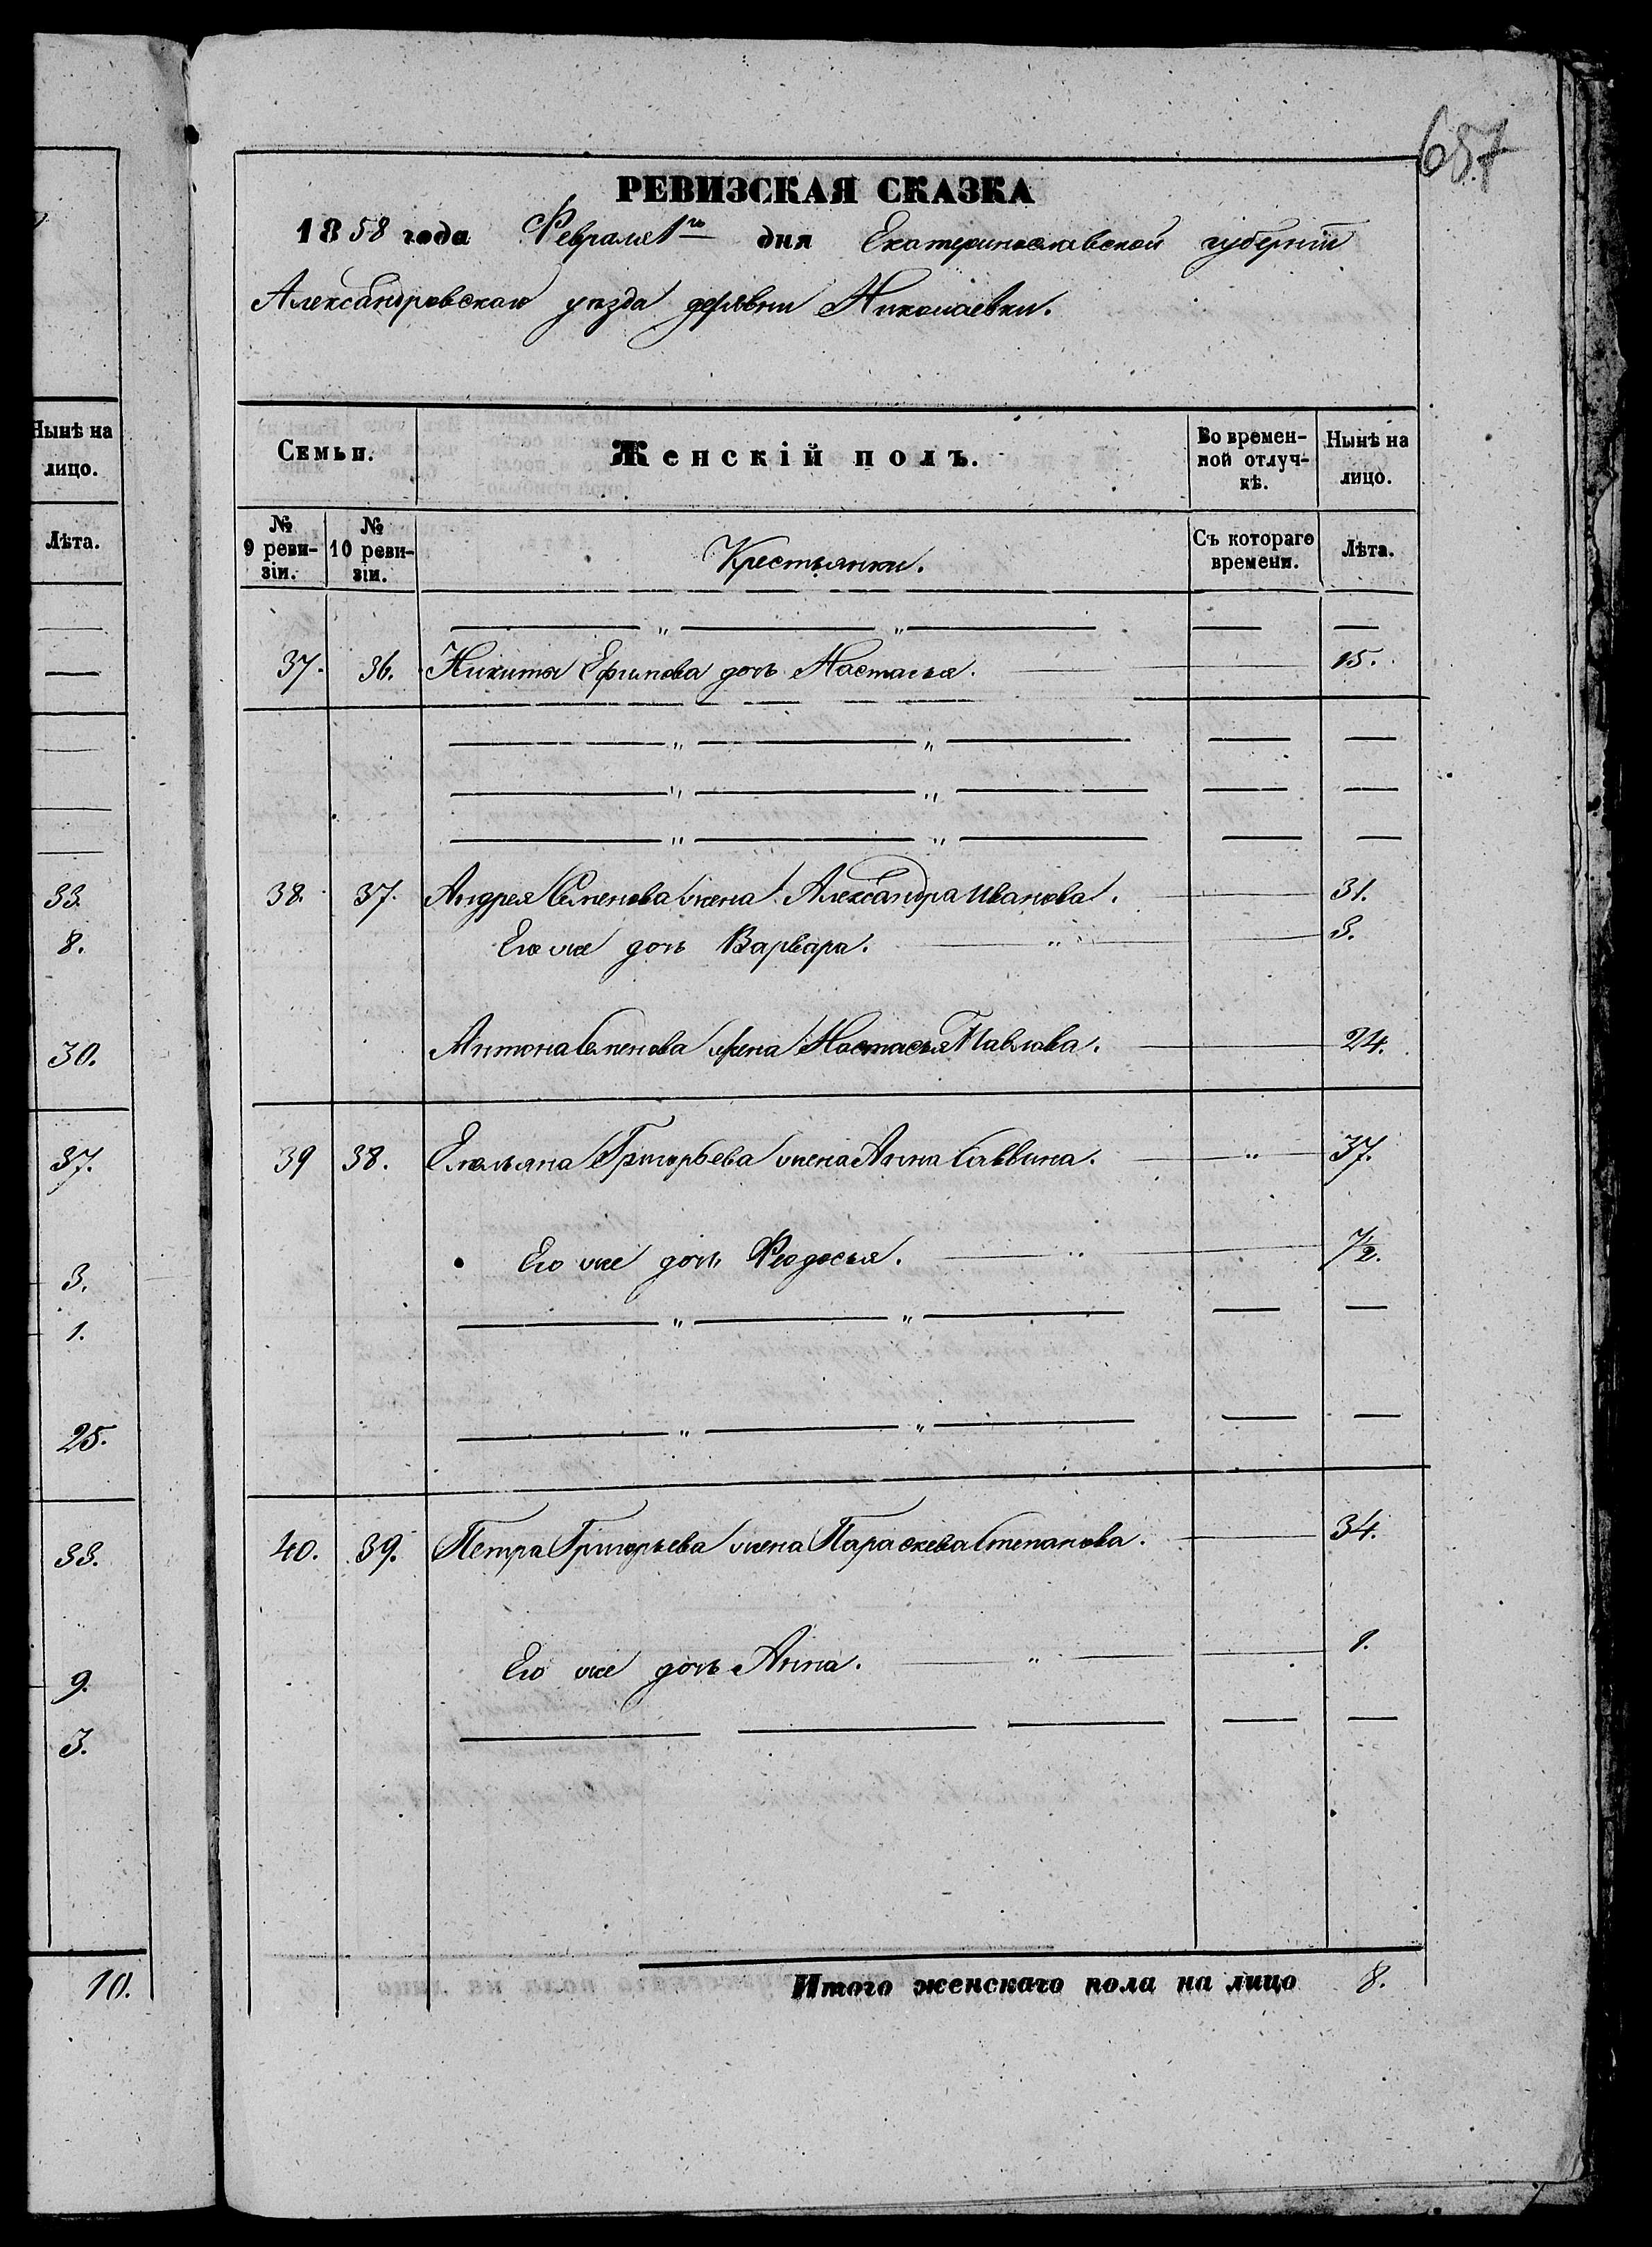 657
РЕВИЗСКАЯ СКАЗКА
1858 года Февраля 1го дня Екатеринославской губерніи
Александровскаго уѣзда деревни Николаевки.
Нынѣ на
лицо.
Лѣта.
33.
8.
30.
37.
3.
1.
25.
33.
9.
3.
10.
Семьи. Женскій полъ. Во времен-
ной отлуч-
кѣ. Нынѣ на
лицо.
№
9 реви-
зіи. №
10 реви-
зіи. Крестьянки. Съ котораго
времени. Лѣта.
37. 36. Никиты Ефимова дочь Настасья. 15.
38. 37. Андрея Семенова жена Александра Иванова. 31.
Его же дочь Варвара. 8.
Антона Семенова жена Настасья Павлова. 24.
39 38. Емельяна Григорьева жена Анна Саввина. 37.
Его же дочь Феодосья. 1/2.
40. 39. Петра Григорьева жена Параскева Степанова. 34.
Его же дочь Анна. 1.
Итого женскаго пола на лицо 8.